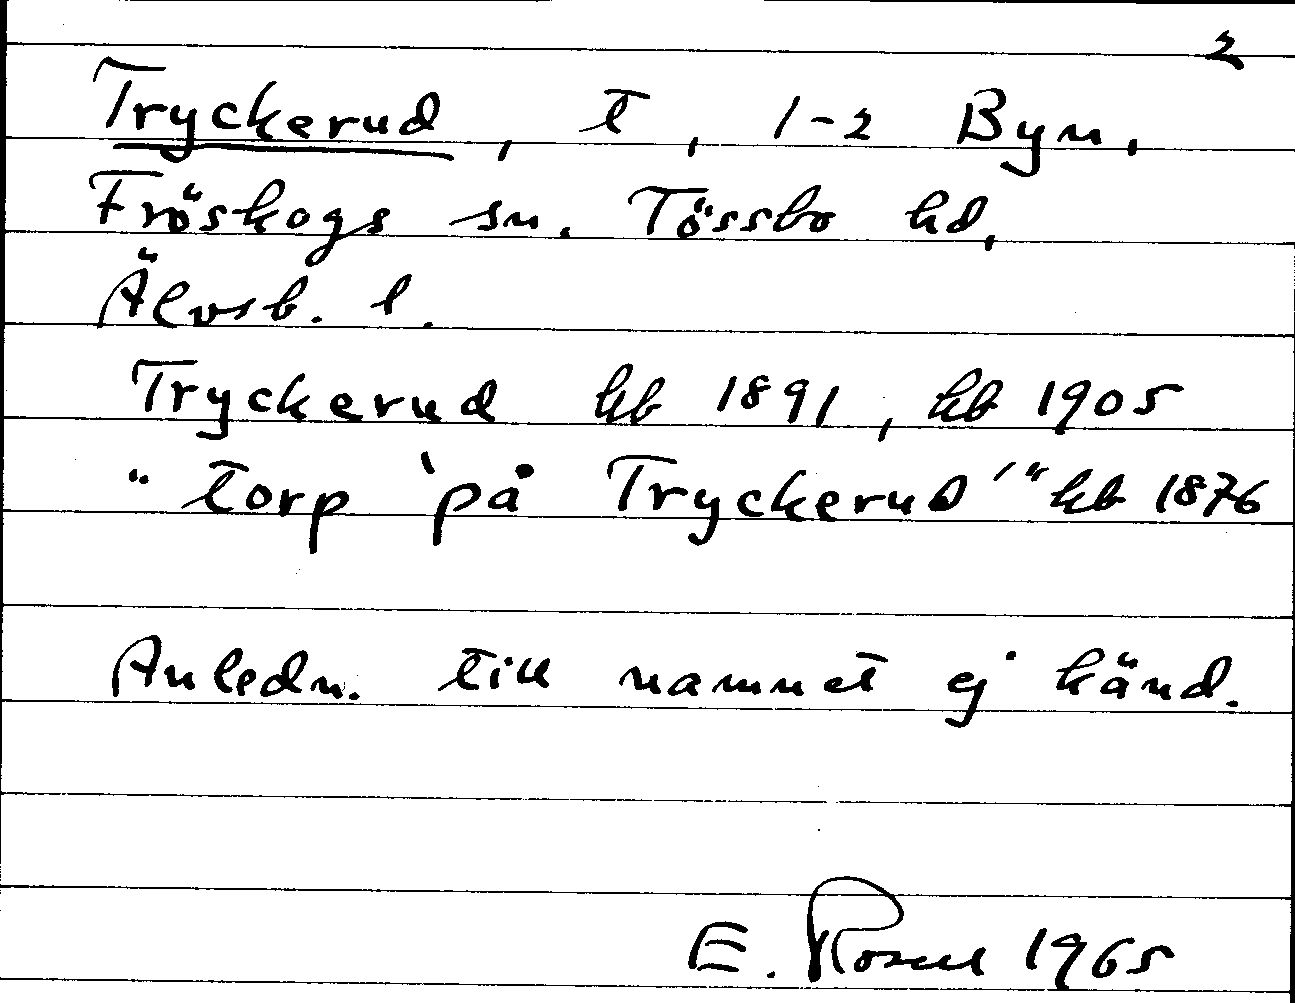 2
Tryckerud, t, 1-2 Byn,
Fröskogs sn. Tössbo hd,
Älvsb. l.
Tryckerud hb 1891, hb 1905
"torp 'på Tryckerud'" hb 1876
Anledn. till namnet ej känd.
E. Rosell 1965